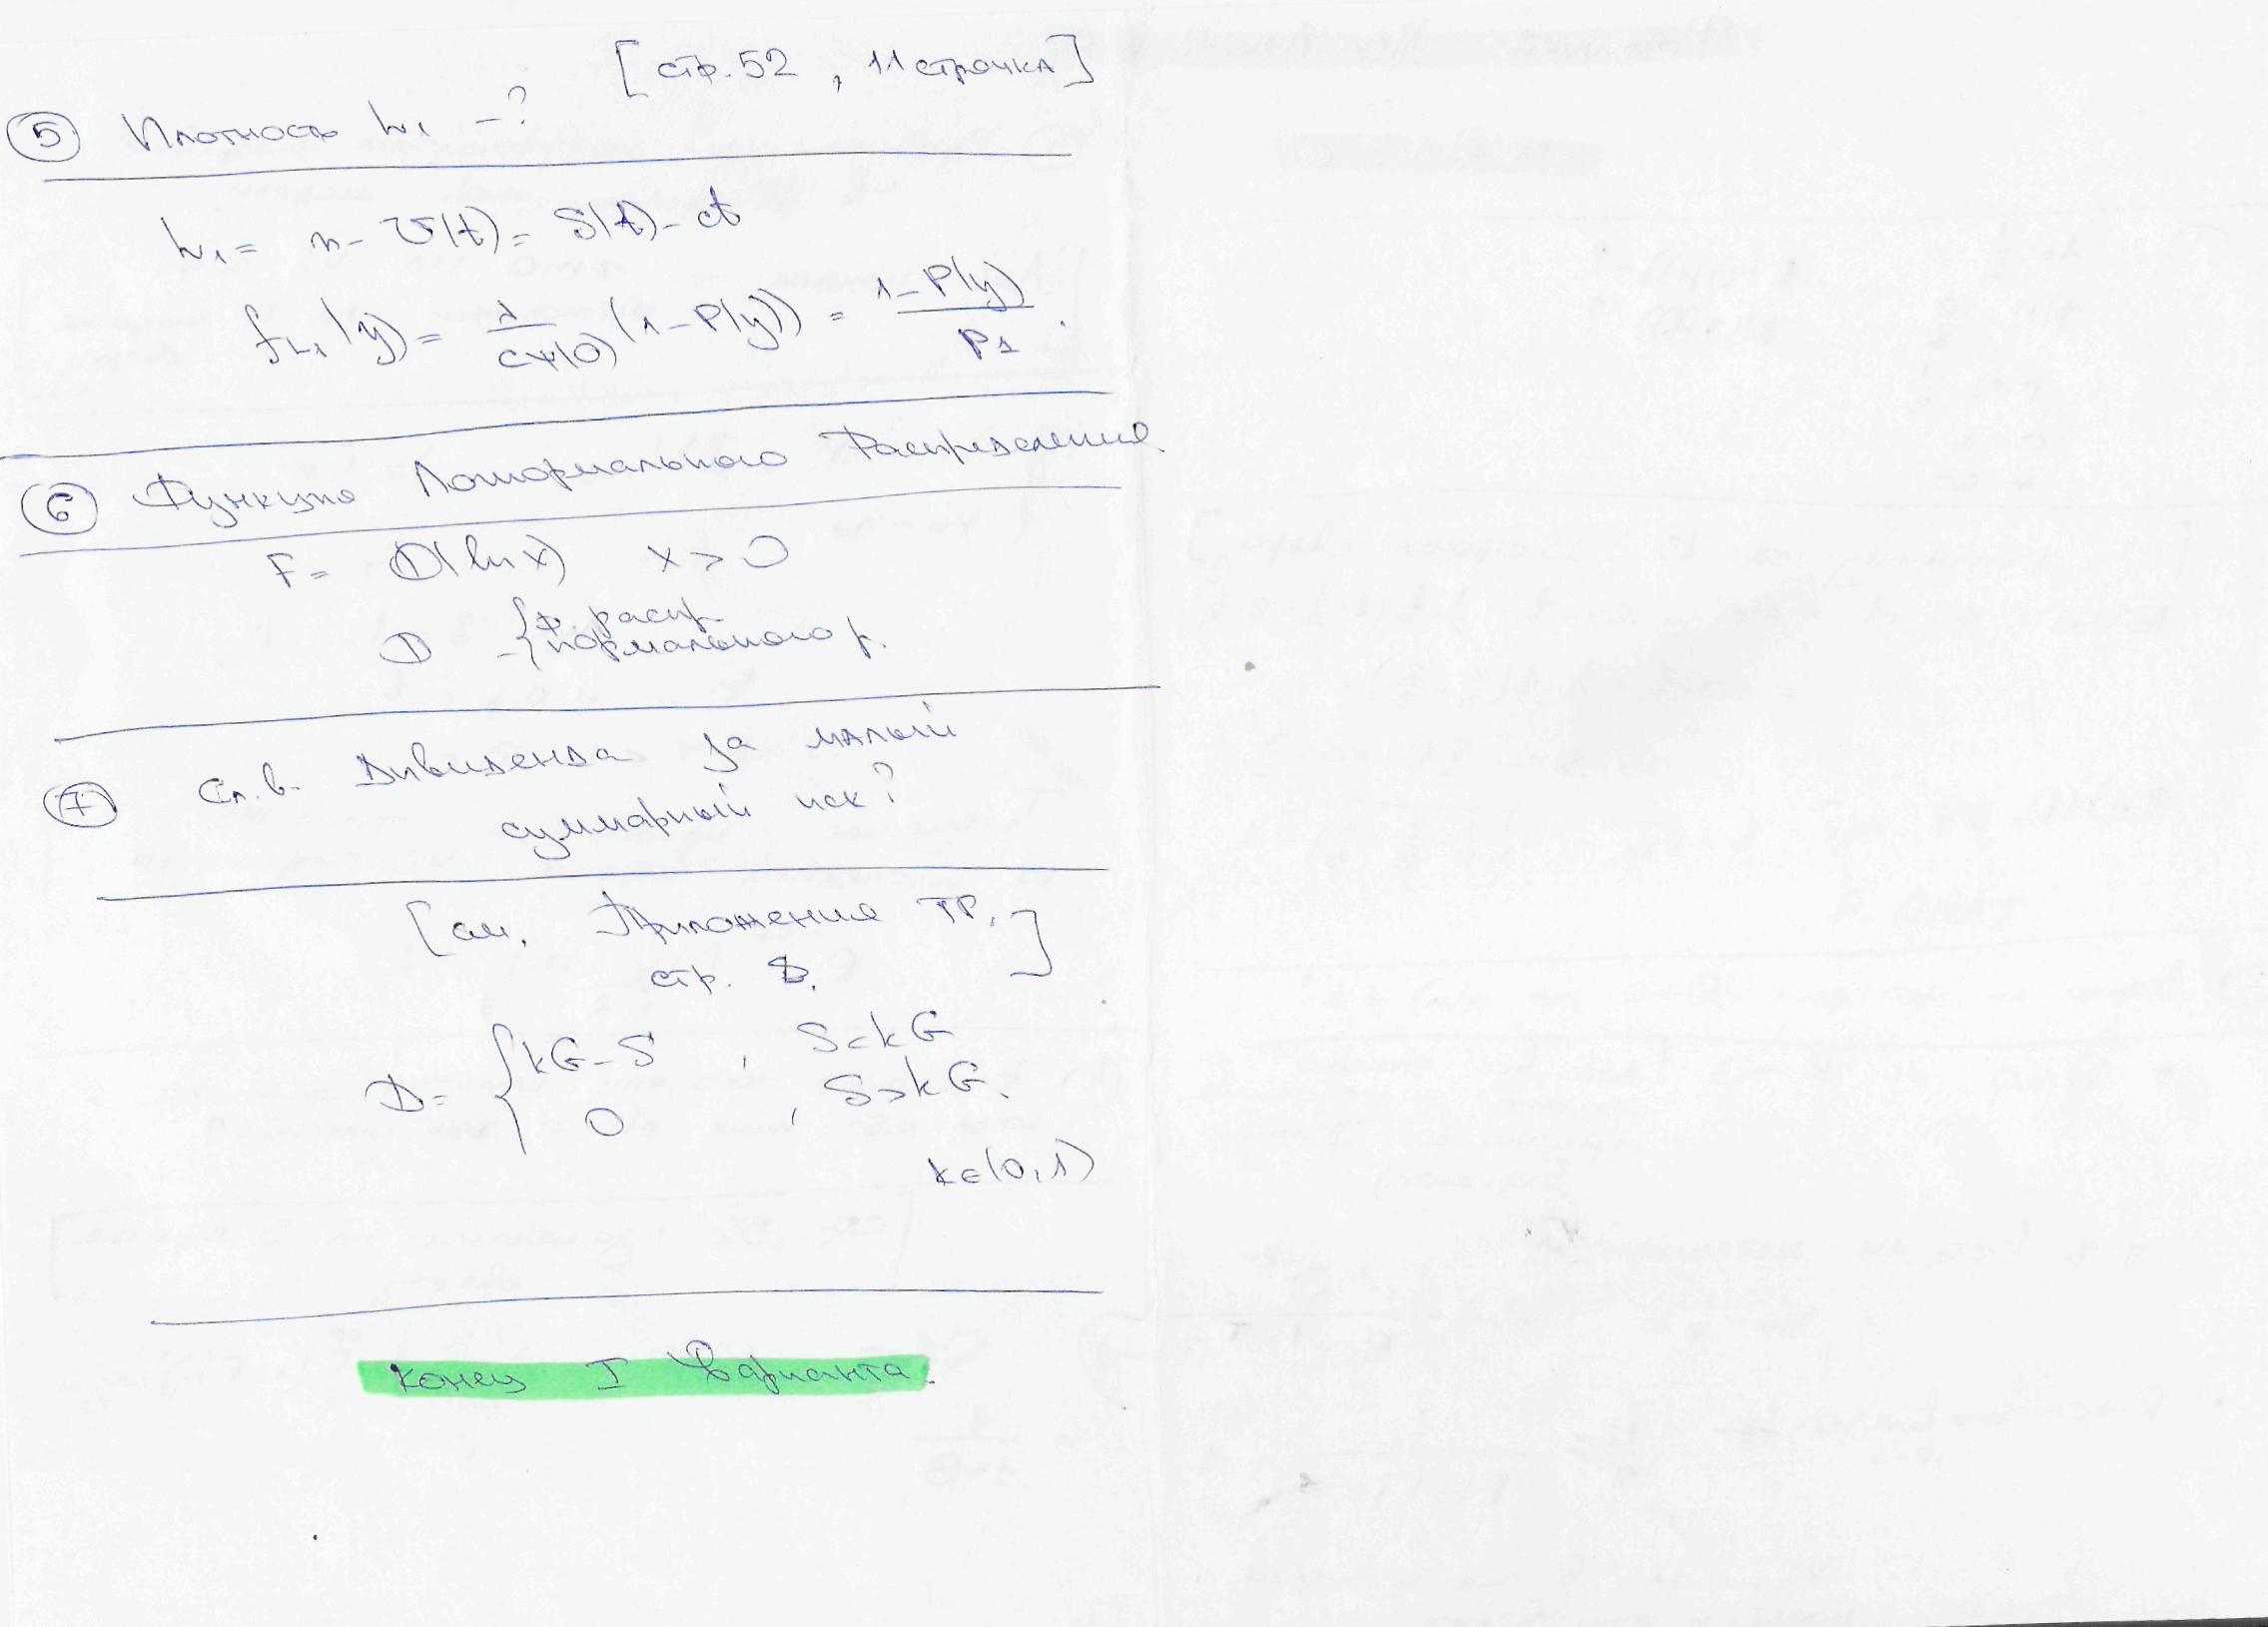 [стр. 52 , 11 строчка]
5 Плотность L₁ - ?
L₁ = u - U(t) = S(t) - ct
f_{L₁}(y) = λ/(cψ(0)) (1 - P(y)) = (1 - P(y))/p₁ .
6 Функция Логнормального Распределения
F = Φ(ln x) x > 0
Φ - { ф. распр.
нормального р.
7 Сл. в. Дивиденда за малый
суммарный иск?
[см. Приложение ТР,
стр. 8. ]
D = { kG - S , S < kG
0 , S > kG.
k ∈ (0, 1)
Конец I Варианта.